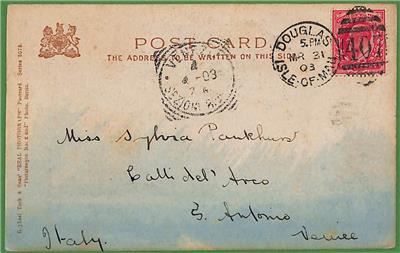 POST CARD.
THE ADDRESS TO BE WRITTEN ON THIS SIDE
DOUGLAS
5.PM
MR 31
03
ISLE-OF-MAN
407
-03
Miss Sylvia Pankhurst
Calli del' Arco
S. Antonio
Italy.
Venice
Raphael Tuck & Sons' "REAL PHOTOGRAPH" Postcard Series